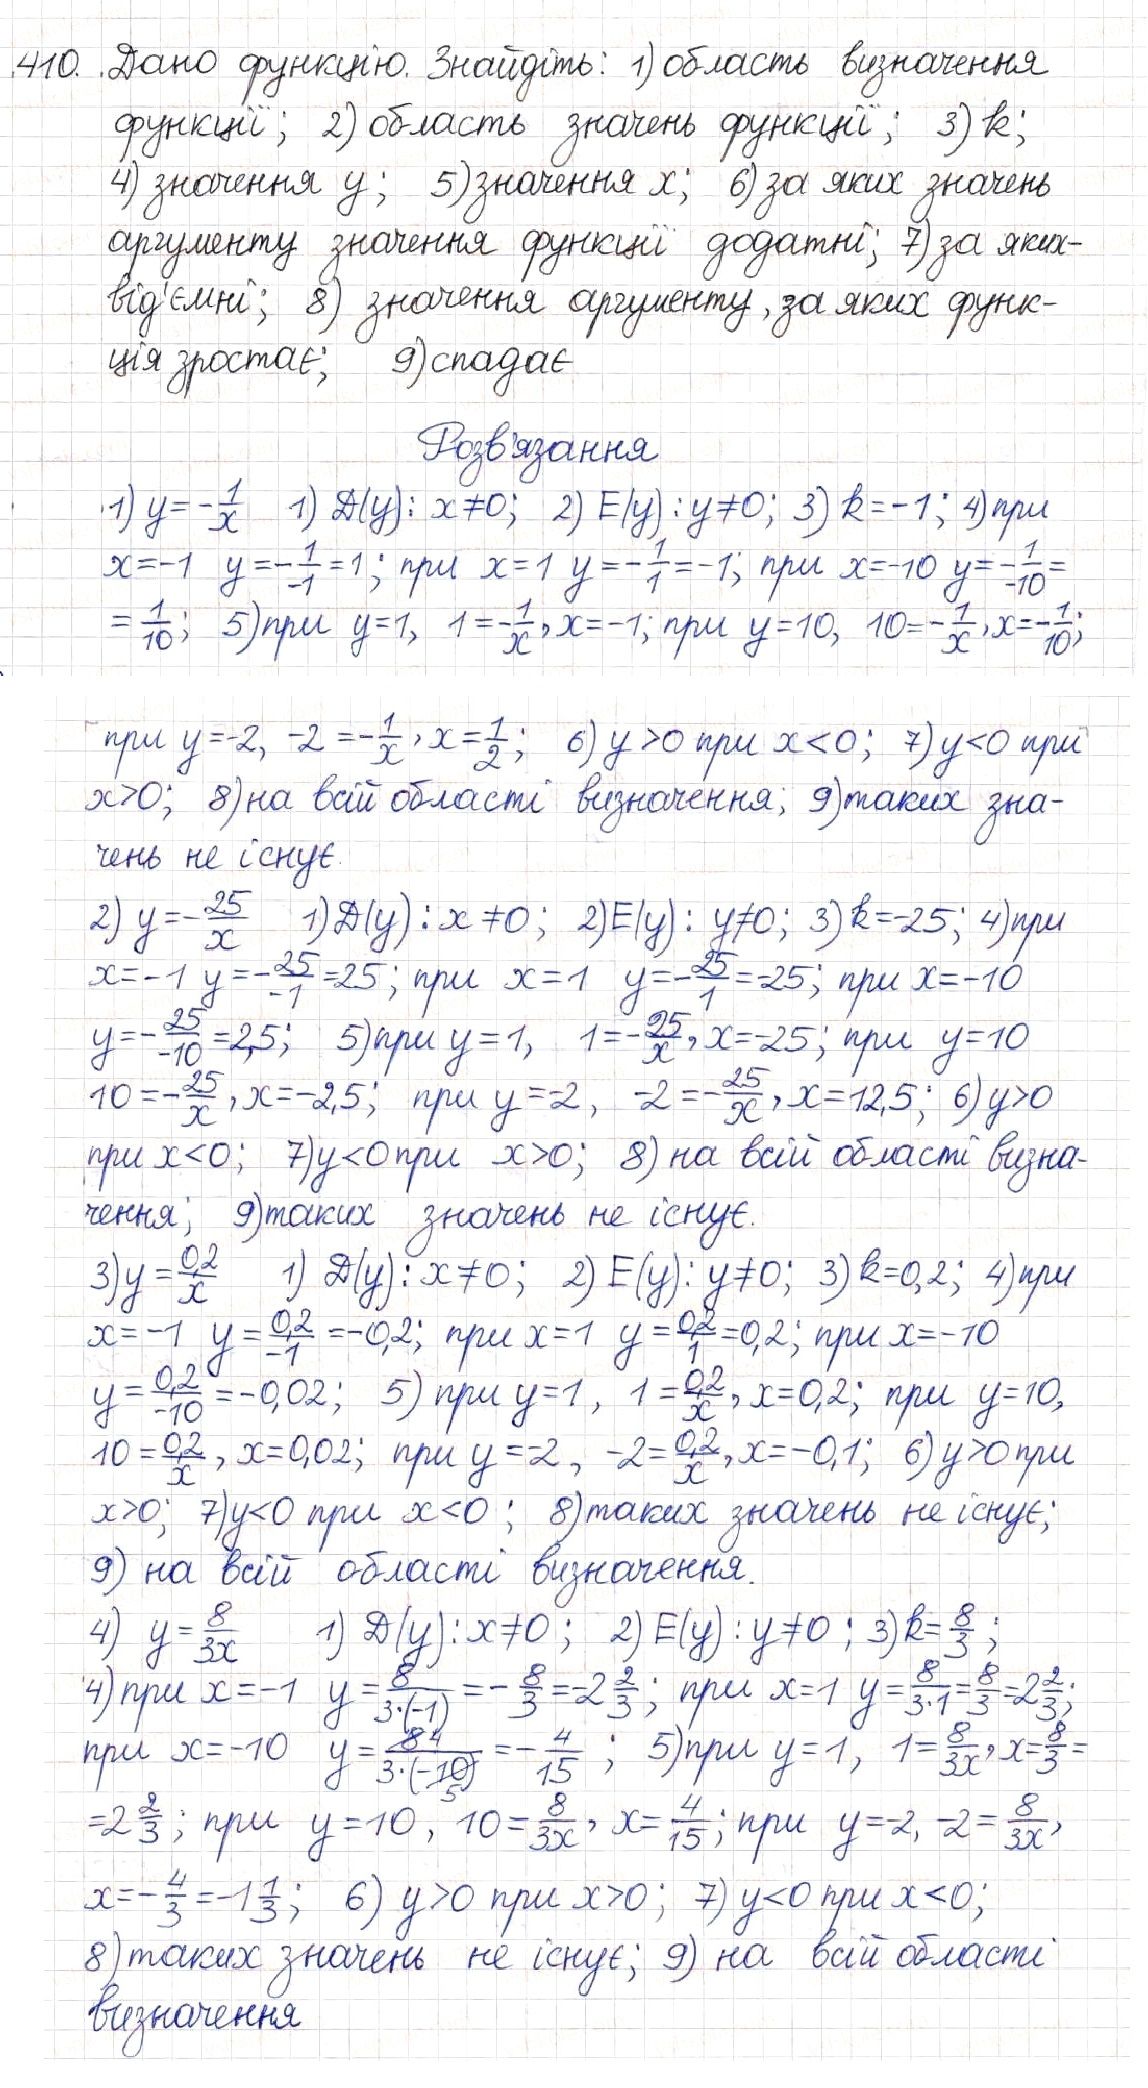 410. Дано функцію. Знайдіть: 1) область визначення
функції; 2) область значень функції; 3) k;
4) значення y; 5) значення x; 6) за яких значень
аргументу значення функції додатні; 7) за яких-
від'ємні; 8) значення аргументу, за яких функ-
ція зростає; 9) спадає
Розв'язання
1) y = -1/x 1) D(y): x≠0; 2) E(y): y≠0; 3) k=-1; 4) при
x=-1 y=-1/-1=1; при x=1 y=-1/1=-1; при x=-10 y=-1/-10=
=1/10; 5) при y=1, 1=-1/x, x=-1; при y=10, 10=-1/x, x=-1/10;
при y=-2, -2=-1/x, x=1/2; 6) y>0 при x<0; 7) y<0 при
x>0; 8) на всій області визначення; 9) таких зна-
чень не існує.
2) y=-25/x 1) D(y): x≠0; 2) E(y): y≠0; 3) k=-25; 4) при
x=-1 y=-25/-1=25; при x=1 y=-25/1=-25; при x=-10
y=-25/-10=2,5; 5) при y=1, 1=-25/x, x=-25; при y=10
10=-25/x, x=-2,5; при y=-2, -2=-25/x, x=12,5; 6) y>0
при x<0; 7) y<0 при x>0; 8) на всій області визна-
чення; 9) таких значень не існує.
3) y=0,2/x 1) D(y): x≠0; 2) E(y): y≠0; 3) k=0,2; 4) при
x=-1 y=0,2/-1=-0,2; при x=1 y=0,2/1=0,2; при x=-10
y=0,2/-10=-0,02; 5) при y=1, 1=0,2/x, x=0,2; при y=10,
10=0,2/x, x=0,02; при y=-2, -2=0,2/x, x=-0,1; 6) y>0 при
x>0; 7) y<0 при x<0; 8) таких значень не існує;
9) на всій області визначення.
4) y=8/3x 1) D(y): x≠0; 2) E(y): y≠0; 3) k=8/3;
4) при x=-1 y=8/3·(-1)=-8/3=-2 2/3; при x=1 y=8/3·1=8/3=2 2/3;
при x=-10 y=8 4/3·(-10) 5=-4/15; 5) при y=1, 1=8/3x, x=8/3=
=2 2/3; при y=10, 10=8/3x, x=4/15; при y=-2, -2=8/3x,
x=-4/3=-1 1/3; 6) y>0 при x>0; 7) y<0 при x<0;
8) таких значень не існує; 9) на всій області
визначення